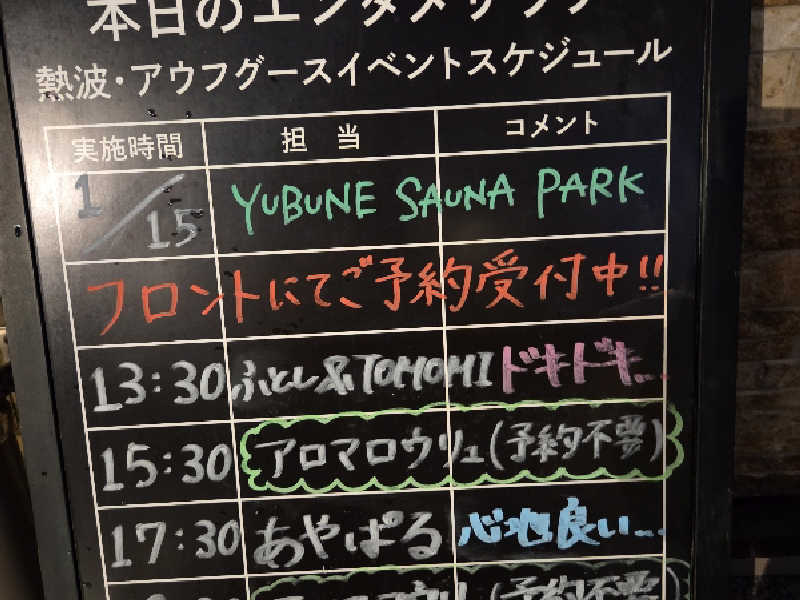 本日のエンタメサウナ
熱波・アウフグースイベントスケジュール
実施時間 担当 コメント
1/15 YUBUNE SAUNA PARK
フロントにてご予約受付中!!
13:30 ふとし&TOMOMI ドキドキ…
15:30 アロマロウリュ(予約不要)
17:30 あやぱる 心地良い…
(予約不要)